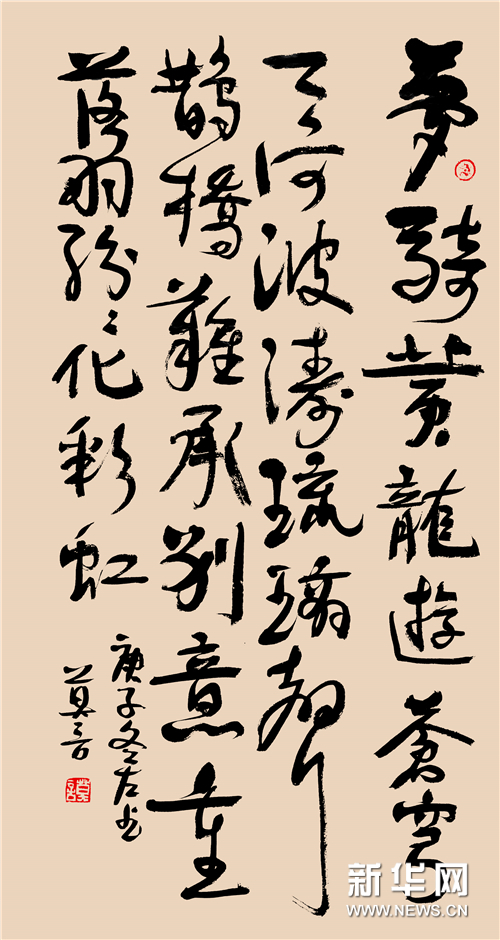 夢騎黄龍遊蒼穹
天河波濤琉璃聲
鵲橋難承别意重
落羽紛紛化彩虹
庚子冬左书
莫言
新华网
WWW.NEWS.CN